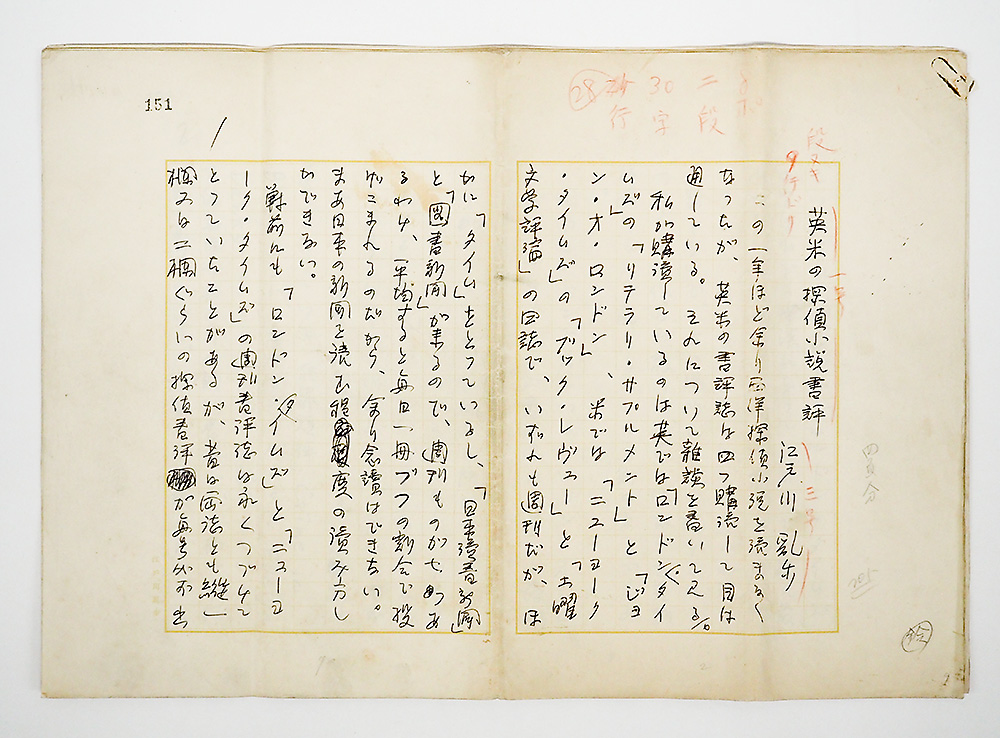 151
8ポ
二段
30字
28行
段ヌキ
タ行ドリ
英米の探偵小説書評
江戸川乱歩
三号
四頁分
この一年ほど余り西洋探偵小説を読まなく
なったが、英米の書評誌は四つ購読して目は
通している。それについて雑談を書いて見る。
私が購読しているのは英では「ロンドンタイ
ムズ」の「リテラリ・サプルメント」と「ジョ
ン・オ・ロンドン」、米では「ニューヨーク
・タイムズ」の「ブック・レヴュー」と「土曜
文学評論」の四誌で、いずれも週刊だが、ほ
かに「タイム」をとっているし、「日本読書新聞」
と「図書新聞」が来るので、週刊ものが七つあ
るわけ、平均すると毎日一冊ヅツの割合で投
げこまれるのだから、余り念読はできない。
まあ日本の新聞を読む程度の読み方し
かできない。
戦前にも「ロンドン・タイムズ」と「ニューヨ
ーク・タイムズ」の週刊書評誌は永くつづけて
とっていたことがあるが、昔は両誌とも縦一
欄又は二欄ぐらいの探偵書評が毎号必ず出